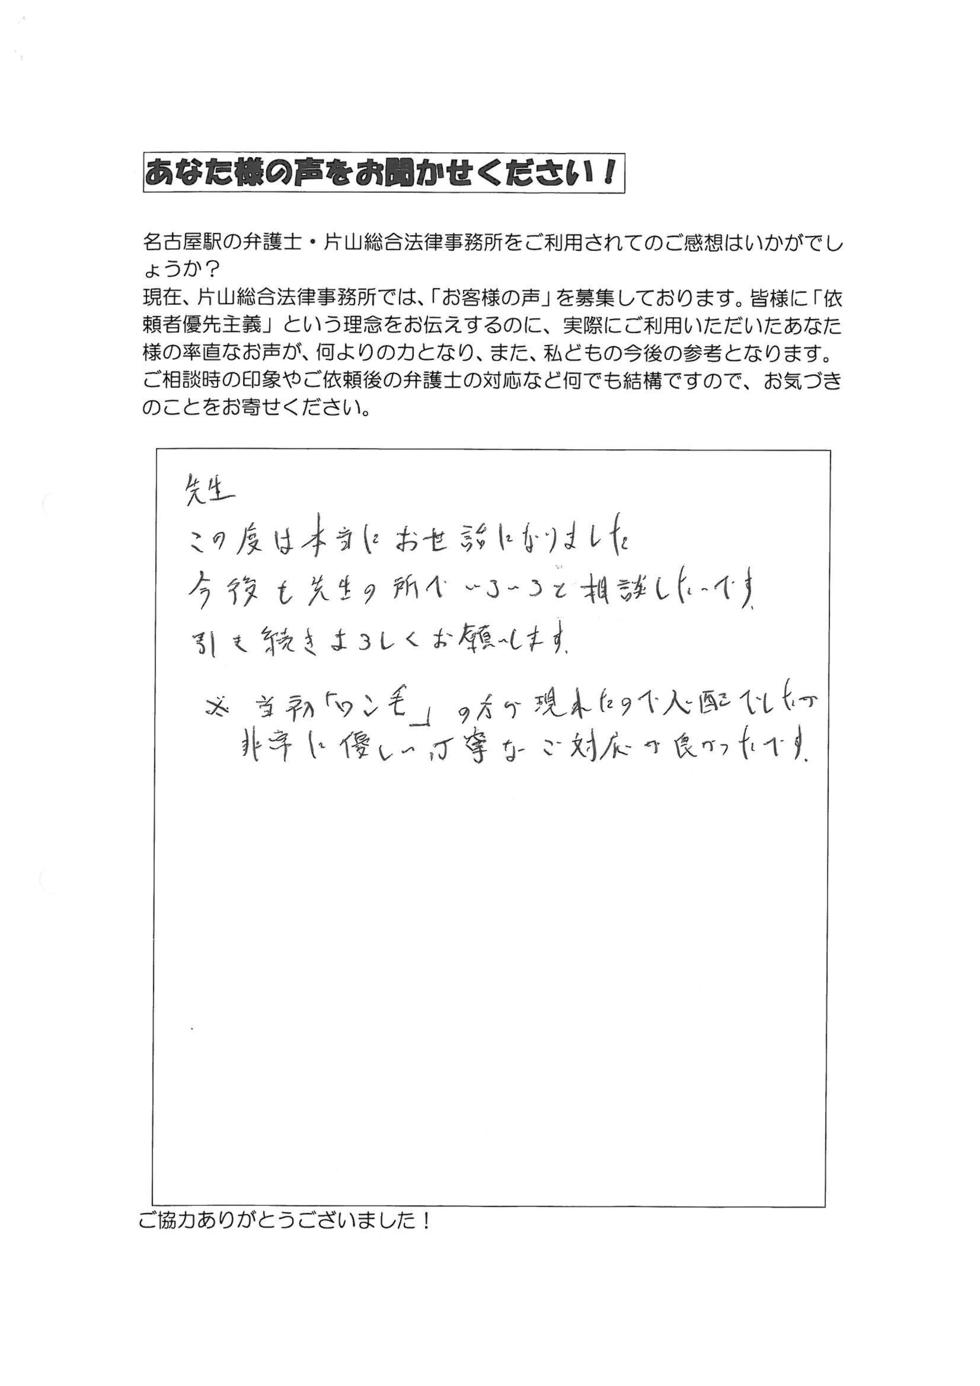 あなた様の声をお聞かせください！
名古屋駅の弁護士・片山総合法律事務所をご利用されてのご感想はいかがでし
ょうか？
現在、片山総合法律事務所では、「お客様の声」を募集しております。皆様に「依
頼者優先主義」という理念をお伝えするのに、実際にご利用いただいたあなた
様の率直なお声が、何よりの力となり、また、私どもの今後の参考となります。
ご相談時の印象やご依頼後の弁護士の対応など何でも結構ですので、お気づき
のことをお寄せください。
先生
この度は本当にお世話になりました
今後も先生の所でいろいろと相談したいです.
引き続きよろしくお願いします.
※ 当初「ワンモ」の方が現れたので心配でしたが
非常に優しい丁寧なご対応が良かったです.
ご協力ありがとうございました！